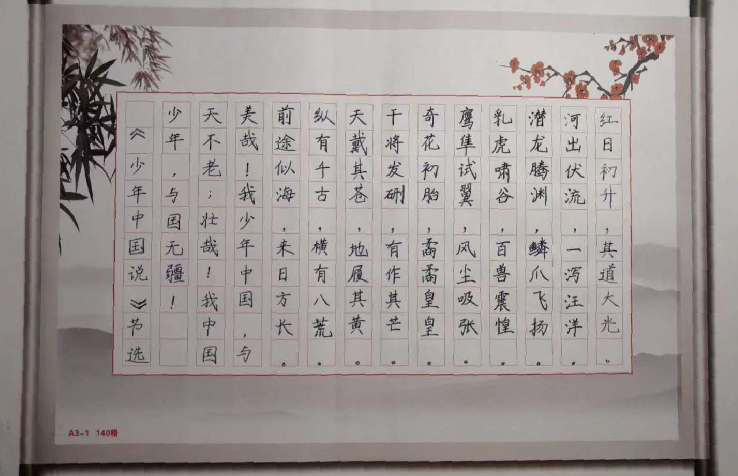 红日初升，其道大光。
河出伏流，一泻汪洋。
潜龙腾渊，鳞爪飞扬。
乳虎啸谷，百兽震惶。
鹰隼试翼，风尘吸张。
奇花初胎，矞矞皇皇。
干将发硎，有作其芒。
天戴其苍，地履其黄。
纵有千古，横有八荒。
前途似海，来日方长。
美哉！我少年中国，与
天不老；壮哉！我中国
少年，与国无疆！
《少年中国说》节选
A3-1 140格